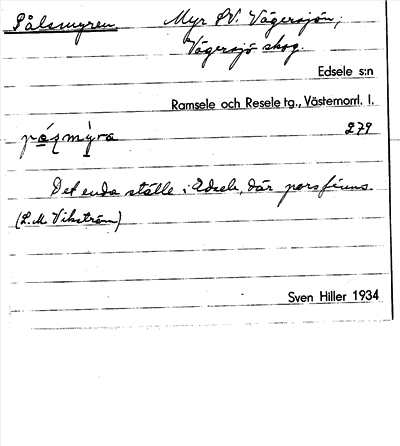 Pålsmyren Myr SV. Vägersjön,
Vägersjö skog.
Edsele s:n
Ramsele och Resele tg., Västernorrl. l.
279
Det enda ställe i Edsele, där pors finns.
(L. M. Vikström)
Sven Hiller 1934